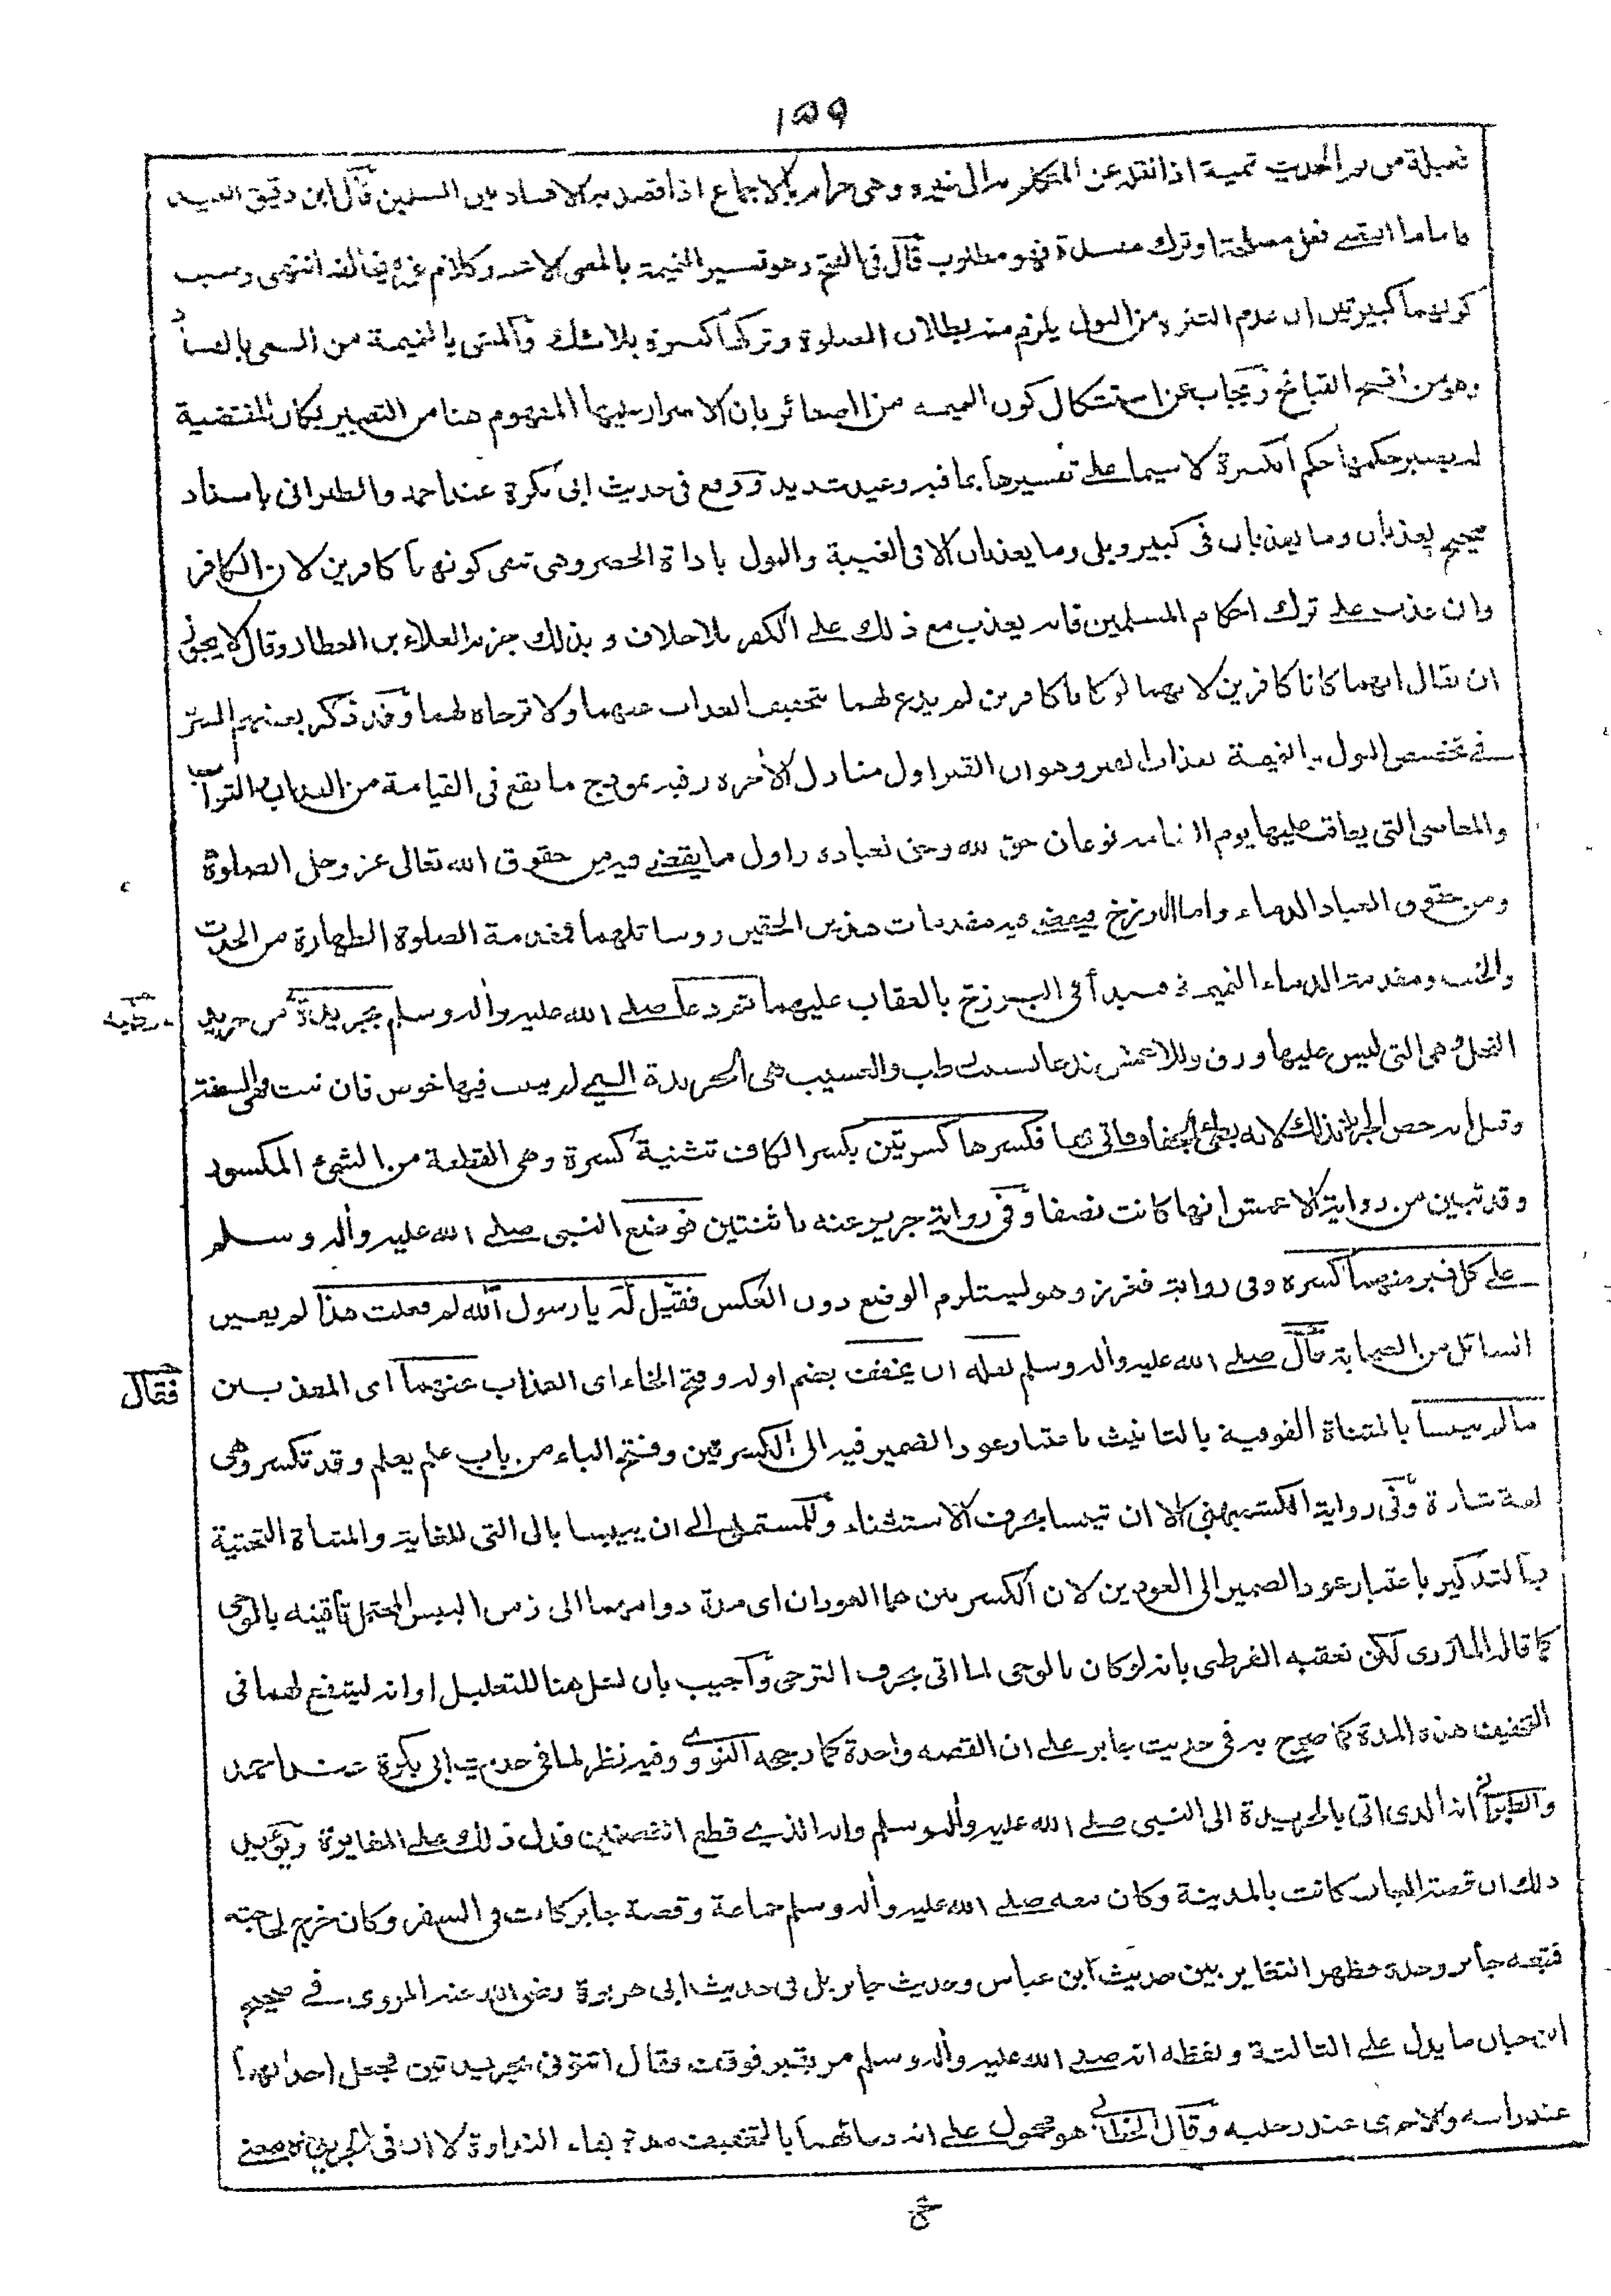 ١٥٩
فعيلة من نم الحديث نميمة اذا نقله عن المتكلم به الى غيره وهى حرام بالاجماع اذا قصد بها الافساد بين المسلمين قال ابن دقيق العيد
فاما ما اقتضى فعل مصلحة او ترك مفسدة فهو مطلوب قال فى الفتح وهو تفسير النميمة بالمعنى الاعم وكلام غيره يخالفه انتهى وسبب
كونهما كبيرتين ان عدم التنزه من البول يلزم منه بطلان الصلوة وتركها كبيرة بلاشك والمشى بالنميمة من السعى بالفساد
وهو من اقبح القبائح ويجاب عن استشكال كون النميمة من الصغائر بان الاصرار عليها المفهوم هنا من التعبير بكان المقتضية
له يصير حكمها حكم الكبيرة لا سيما على تفسيرها بما فيه وعيد شديد ووقع فى حديث ابى بكرة عند احمد والطبرانى باسناد
صحيح يعذبان وما يعذبان فى كبير وبلى وما يعذبان الا فى الغيبة والبول باداة الحصر وهى تنفى كونهما كافرين لان الكافر
وان عذب على ترك احكام المسلمين فانه يعذب مع ذلك على الكفر بلاخلاف وبذلك جزم العلاء بن العطار وقال لا يجوز
ان يقال انهما كانا كافرين لانهما لو كانا كافرين لم يدع لهما بتخفيف العذاب عنهما ولا ترجاه لهما وقد ذكر بعضهم السر
فى تخصيص البول والنميمة بعذاب القبر وهو ان القبر اول منازل الآخرة وفيه نموذج ما يقع فى القيامة من العذاب والثواب
والمعاصى التى يعاقب عليها يوم القيامة نوعان حق لله وحق لعباده واول ما يقضى فيه من حقوق الله تعالى عز وجل الصلوة
ومن حقوق العباد الدماء واما البرزخ فيقضى فيه مقدمات هذين الحقين ووسائلهما فمقدمة الصلوة الطهارة من الحدث
والخبث ومقدمة الدماء النميمة فيبدأ فى البرزخ بالعقاب عليهما ثم دعا صلى الله عليه وآله وسلم بجريدة من جريد
النخل وهى التى ليس عليها ورق وللاعمش فدعا بعسيب رطب والعسيب هى الجريدة التى لم ينبت فيها خوص فان نبت فهى السعفة
وقيل انه خص الجريد بذلك لانه بطئ الجفاف فكسرها كسرتين بكسر الكاف تثنية كسرة وهى القطعة من الشئ المكسور
وقد تبين من رواية الاعمش انها كانت نصفا وفى رواية جرير عنه باثنتين فوضع النبى صلى الله عليه وآله وسلم
على كل قبر منهما كسرة وفى رواية فغرز وهو يستلزم الوضع دون العكس فقيل له يا رسول الله لم فعلت هذا لم يعين
السائل من الصحابة قال صلى الله عليه وآله وسلم لعله ان يخفف بضم اوله وفتح الخاء اى العذاب عنهما اى المعذبين
فقال
ما لم تيبسا بالمثناة الفوقية بالتانيث باعتبار عود الضمير فيه الى الكسرتين وفتح الباء من باب علم يعلم وقد تكسر وهى
لغة شاذة وفى رواية الكشميهنى الا ان تيبسا بحرف الاستثناء وللمستملى الى ان ييبسا بالى التى للغاية والمثناة التحتية
بالتذكير باعتبار عود الضمير الى العودين لان الكسرتين هما العودان اى مدة دوامهما الى زمن اليبس المحتمل تأقيته بالوحى
كما قاله المازرى لكن تعقبه القرطبى بانه لو كان بالوحى لما اتى بحرف الترجى وأجيب بان لعل هنا للتعليل او انه ليشفع لهما فى
التخفيف هذه المدة كما صرح به فى حديث جابر على ان القصة واحدة كما رجحه النووى وفيه نظر لما فى حديث ابى بكرة عند احمد
والطبرانى انه الذى اتى بالجريدة الى النبى صلى الله عليه وآله وسلم وانه الذى قطع الغصنين فدل ذلك على المغايرة ويؤيد
ذلك ان قصة الباب كانت بالمدينة وكان معه صلى الله عليه وآله وسلم جماعة وقصة جابر كانت فى السفر وكان خرج لحاجته
فتبعه جابر وحده فظهر التغاير بين حديث ابن عباس وحديث جابر بل فى حديث ابى هريرة رضى الله عنه المروى فى صحيح
ابن حبان ما يدل على الثالثة ولفظه انه صلى الله عليه وآله وسلم مر بقبر فوقف فقال ائتونى بجريدتين فجعل احدهما
عند راسه والاخرى عند رجليه وقال الخطابى هو محمول على انه دعا لهما بالتخفيف مدة بقاء النداوة لا ان فى الجريدة معنى